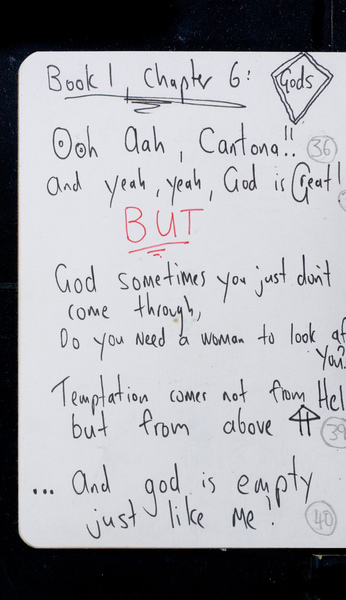 Book 1, Chapter 6:
Gods
Ooh Aah, Cantona!!
36
And yeah, yeah, God is Great!
BUT
God sometimes you just don't
come through,
Do you need a woman to look af
you?
Temptation comes not from Hel
but from above
39
... And god is empty
just like me!
40